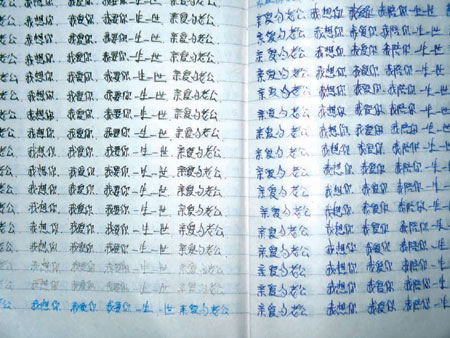 老公 我想你 我爱你 我要你一生一世 亲爱的老公
老公 我想你 我爱你 我要你一生一世 亲爱的老公
老公 我想你 我爱你 我要你一生一世 亲爱的老公
老公 我想你 我爱你 我要你一生一世 亲爱的老公
老公 我想你 我爱你 我要你一生一世 亲爱的老公
老公 我想你 我爱你 我要你一生一世 亲爱的老公
老公 我想你 我爱你 我要你一生一世 亲爱的老公
老公 我想你 我爱你 我要你一生一世 亲爱的老公
老公 我想你 我爱你 我要你一生一世 亲爱的老公
老公 我想你 我爱你 我要你一生一世 亲爱的老公
老公 我想你 我爱你 我要你一生一世 亲爱的老公
老公 我想你 我爱你 我要你一生一世 亲爱的老公
老公 我想你 我爱你 我要你一生一世 亲爱的老公
老公 我想你 我爱你 我要你一生一世 亲爱的老公
老公 我想你 我爱你 我要你一生一世 亲爱的老公
公 我想你 我爱你 我要你一生一世 亲爱的老公
亲爱的老公 我想你 我爱你 我陪你一生一世
亲爱的老公 我想你 我爱你 我陪你一生一世
亲爱的老公 我想你 我爱你 我陪你一生一
亲爱的老公 我想你 我爱你 我陪你一生一
亲爱的老公 我想你 我爱你 我陪你一生一
亲爱的老公 我想你 我爱你 我陪你一生一
亲爱的老公 我想你 我爱你 我陪你一生一
亲爱的老公 我想你 我爱你 我陪你一生
亲爱的老公 我想你 我爱你 我陪你一生
亲爱的老公 我想你 我爱你 我陪你一生
亲爱的老公 我想你 我爱你 我陪你一生
亲爱的老公 我想你 我爱你 我陪你一生
亲爱的老公 我想你 我爱你 我陪你一生
亲爱的老公 我想你 我爱你 我陪你一生
亲爱的老公 我想你 我爱你 我陪你一生
亲爱的老公 我想你 我爱你 我陪你一生